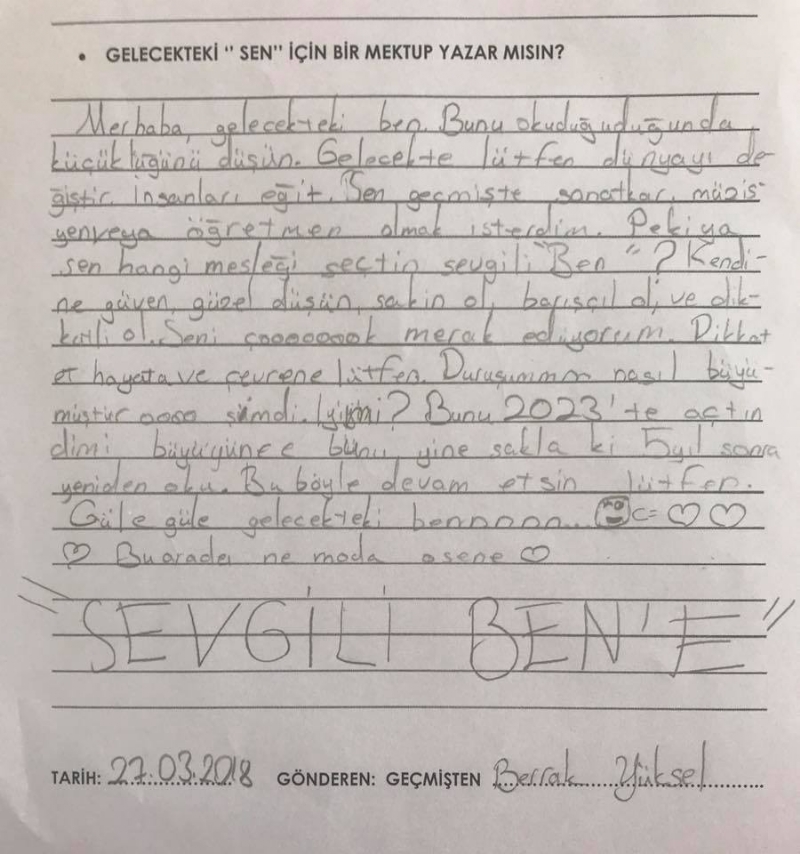 • GELECEKTEKİ " SEN" İÇİN BİR MEKTUP YAZAR MISIN?
Merhaba, gelecekteki ben. Bunu okuduğuduğunda
küçüklüğünü düşün. Gelecekte lütfen dünyayı de-
ğiştir. İnsanları eğit. Ben geçmişte sanatkar, müzis-
yenveya öğretmen olmak isterdim. Peki ya
sen hangi mesleği seçtin sevgili "Ben" ? Kendi-
ne güven, güzel düşün, sakin ol, barışçıl ol, ve dik-
katli ol. Seni çoooooook merak ediyorum. Dikkat
et hayata ve çevrene lütfen. Duruşummm nasıl büyü-
müştür oooo şimdi. İyimi? Bunu 2023'te açtın
dimi büyüyünce bunu yine sakla ki 5yıl sonra
yeniden oku. Bu böyle devam etsin lütfen.
Güle güle gelecekteki bennnnn... c= ♡ ♡
♡ Bu arada ne moda o sene ♡
"SEVGİLİ BEN'E"
TARİH: 27.03.2018 GÖNDEREN: GEÇMİŞTEN Berrak Yüksel